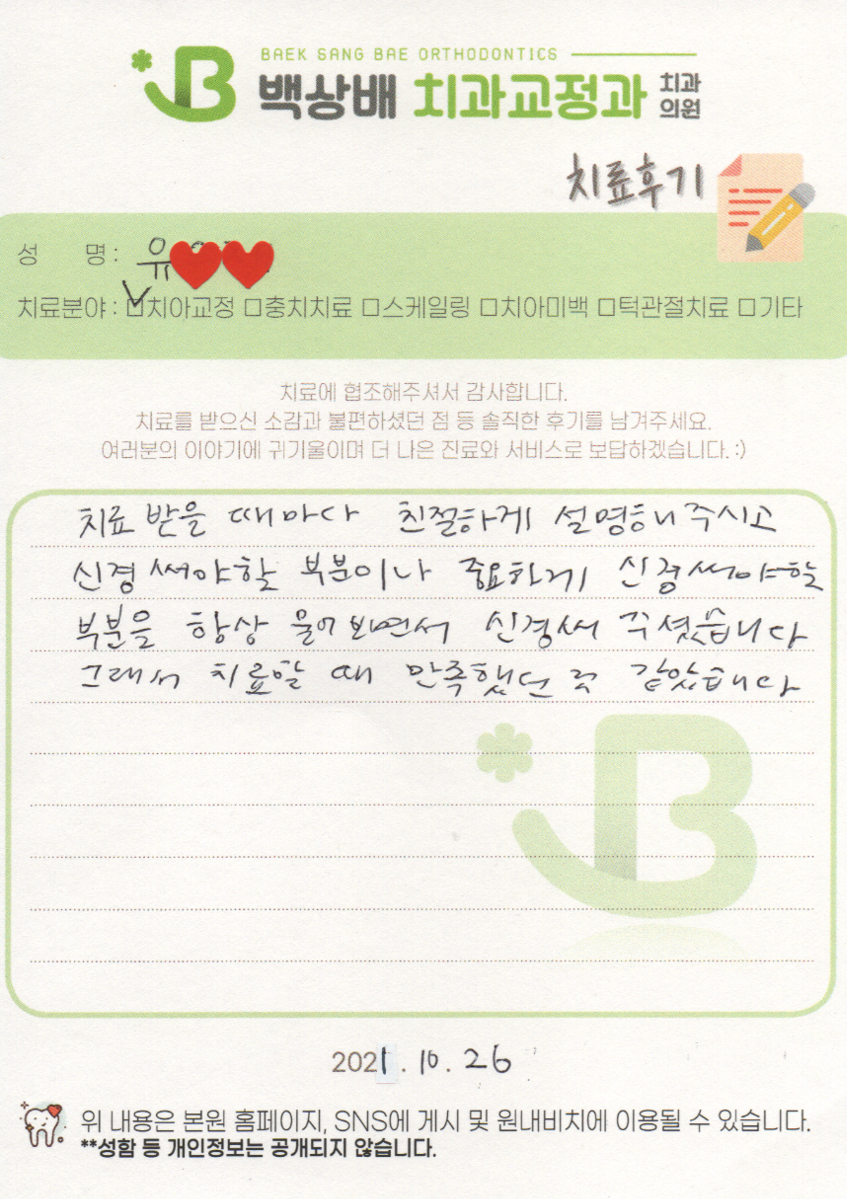 BAEK SANG BAE ORTHODONTICS
백상배 치과교정과 치과의원
치료후기
성 명 : 유
치료분야 : ☑치아교정 □충치치료 □스케일링 □치아미백 □턱관절치료 □기타
치료에 협조해주셔서 감사합니다.
치료를 받으신 소감과 불편하셨던 점 등 솔직한 후기를 남겨주세요.
여러분의 이야기에 귀기울이며 더 나은 진료와 서비스로 보답하겠습니다. :)
치료 받을 때마다 친절하게 설명해주시고
신경 써야할 부분이나 중요하게 신경써야할
부분을 항상 물어보면서 신경써 주셨습니다
그래서 치료할 때 만족했던 것 같았습니다
2021. 10. 26
위 내용은 본원 홈페이지, SNS에 게시 및 원내비치에 이용될 수 있습니다.
**성함 등 개인정보는 공개되지 않습니다.